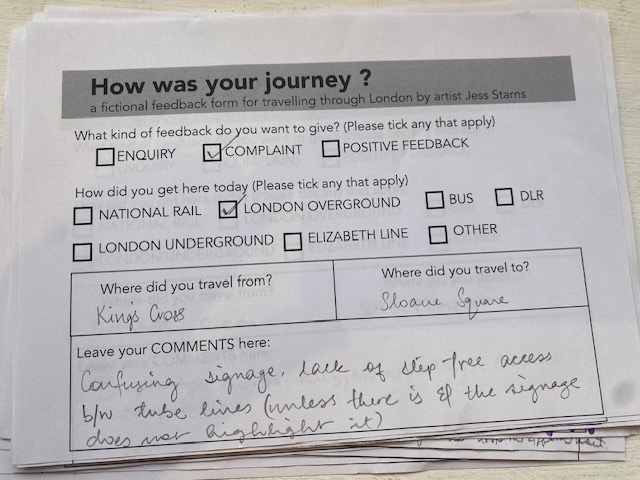 How was your journey ?
a fictional feedback form for travelling through London by artist Jess Starns
What kind of feedback do you want to give? (Please tick any that apply)
ENQUIRY COMPLAINT POSITIVE FEEDBACK
How did you get here today (Please tick any that apply)
NATIONAL RAIL LONDON OVERGROUND BUS DLR
LONDON UNDERGROUND ELIZABETH LINE OTHER
Where did you travel from? Where did you travel to?
King's Cross Sloane Square
Leave your COMMENTS here:
Confusing signage, lack of step-free access
b/w tube lines (unless there is & the signage
does not highlight it)